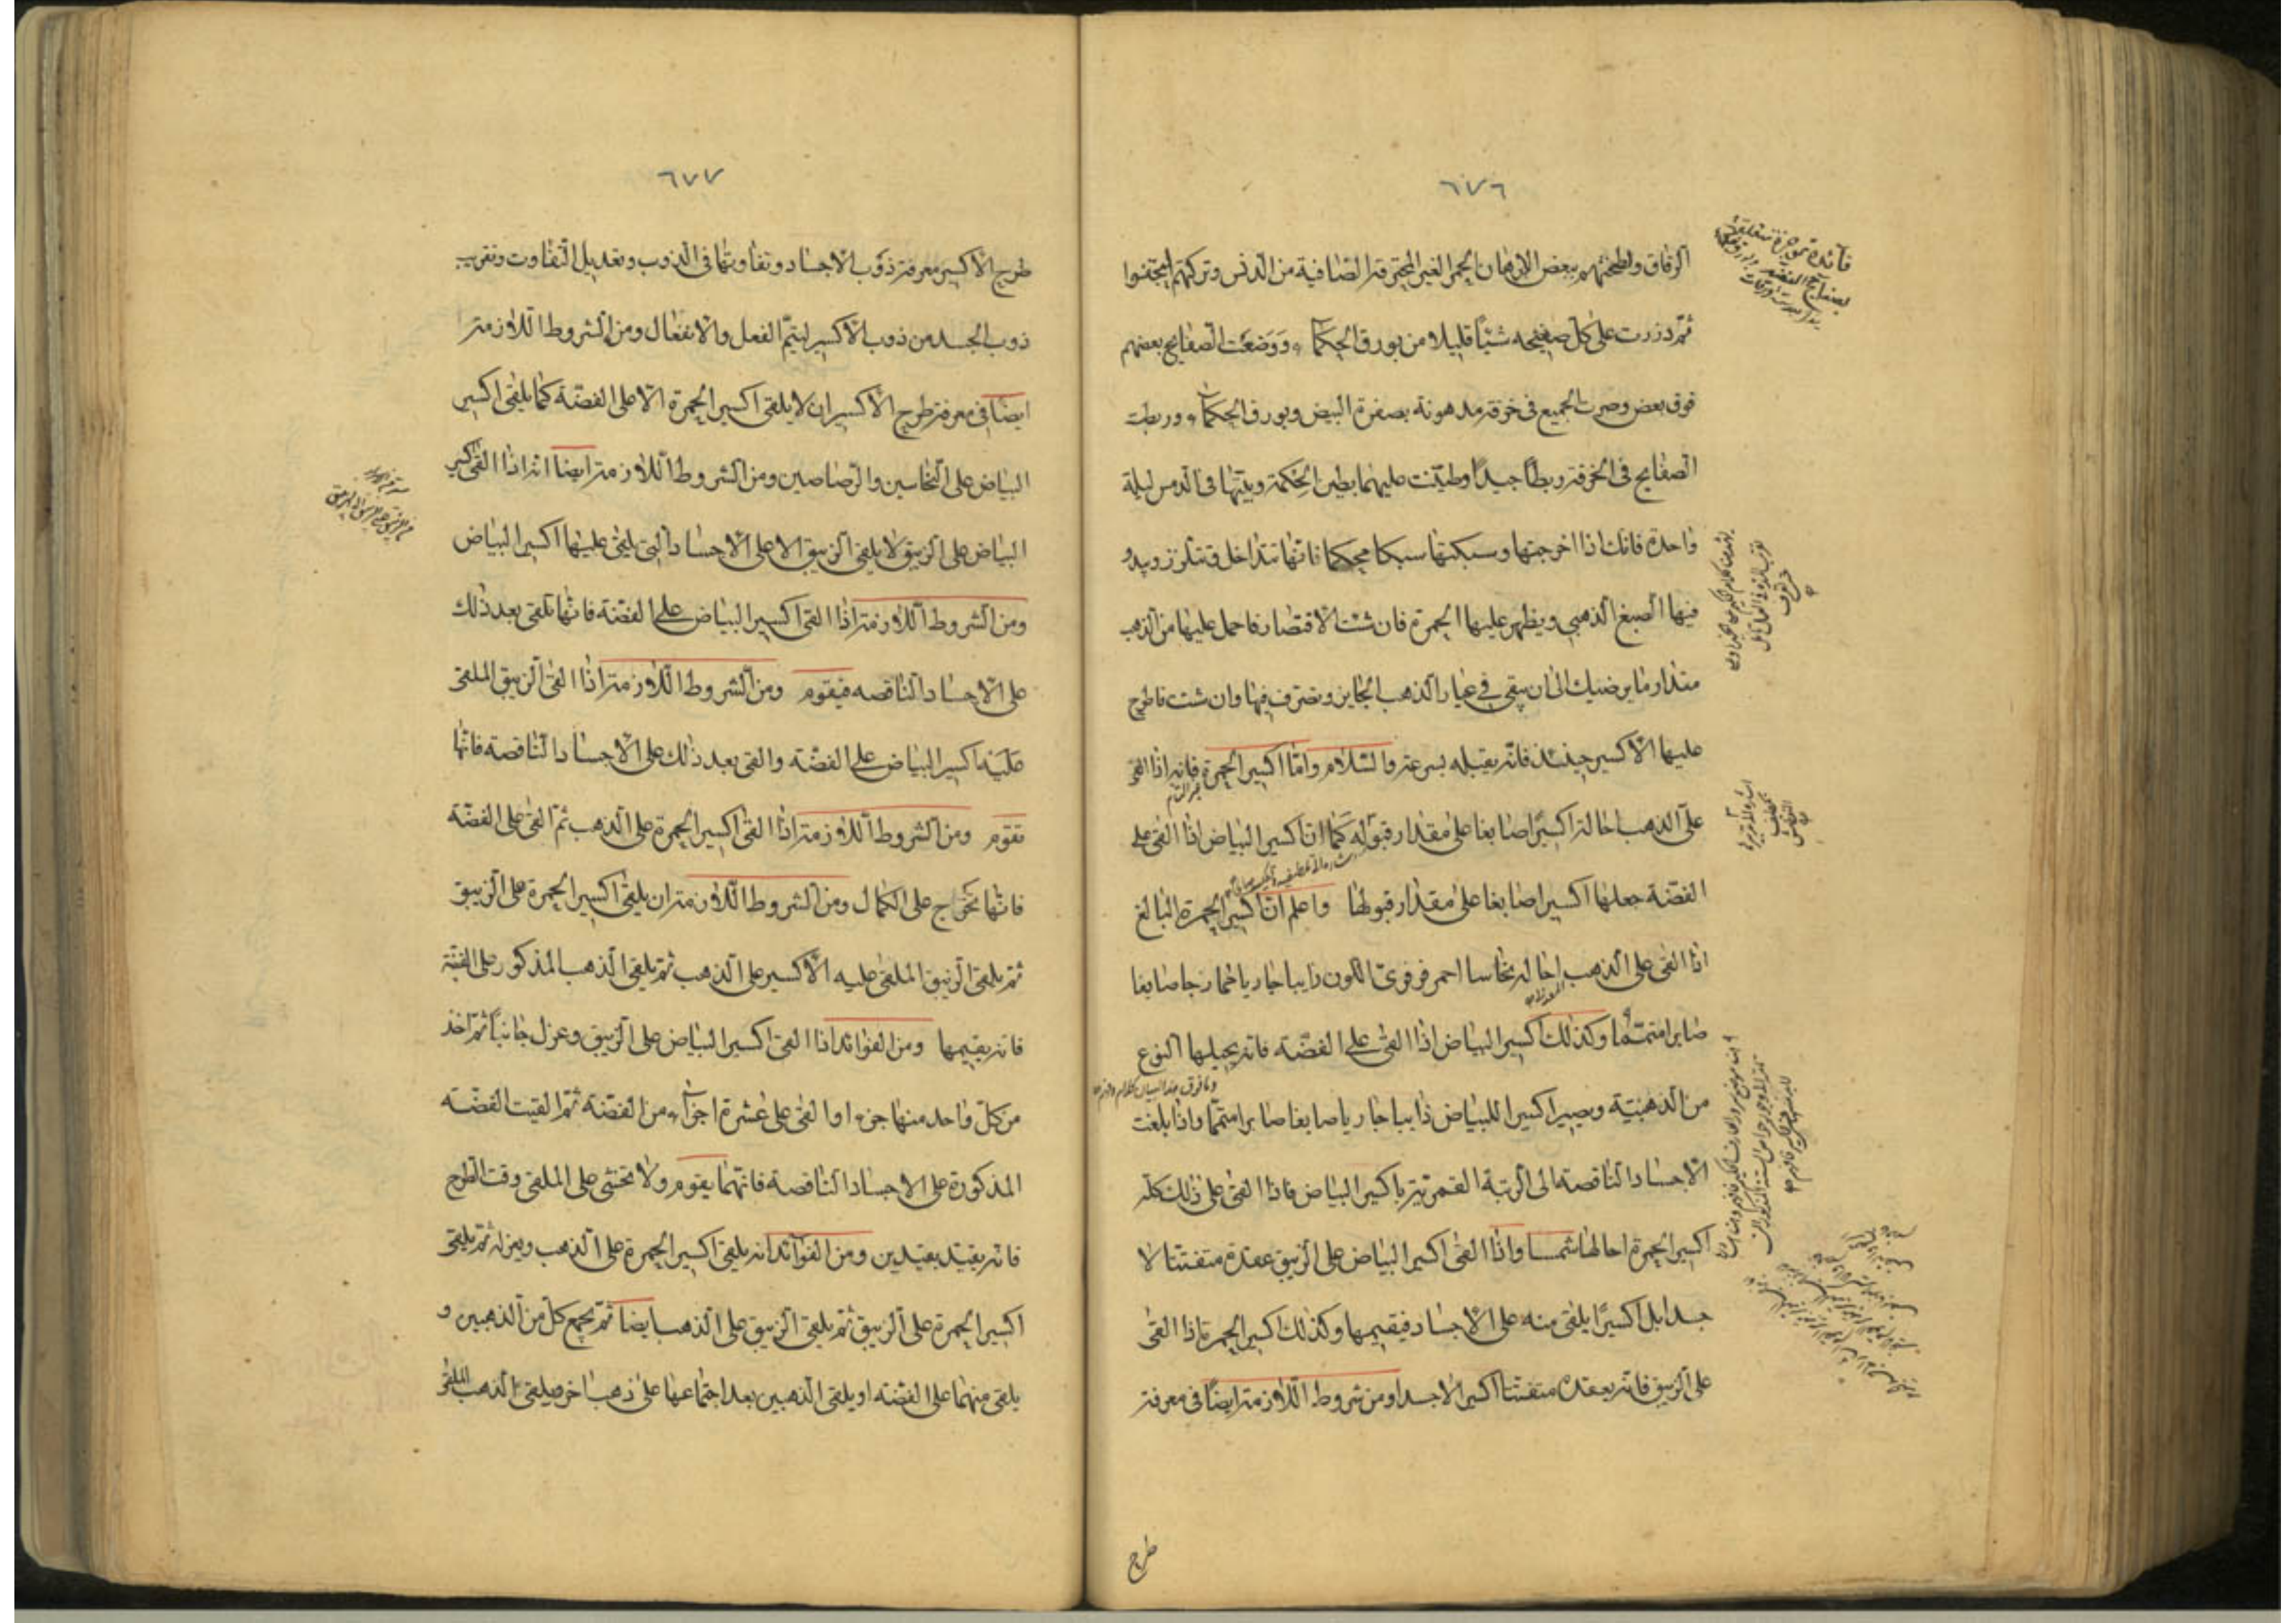 ٦٧٦
الرقاق ولطختهم ببعض الادهان الحمر الغير المحترقة الصافية من الدنس وتركتهم ليجتفوا
ثم ذررت على كل صفيحه شيئاً قليلا من بورق الحكماء ووضعت الصفايح بعضهم
فوق بعض وصررت الجميع فى خرقة مدهونة بصفرة البيض وبورق الحكماء وربطت
الصفايح فى الخرقة ربطاً جيداً وطينت عليهما بطين الحكمة وبيتها فى الدمس ليلة
واحدة فانك اذا اخرجتها وسبكتها سبكا محكما فانها تتداخل وتتلزز ويبدو
فيها الصبغ الذهبى ويظهر عليها الحمرة فان شئت الاقتصار فاحمل عليها من الذهب
مقدار ما يرضيك الى ان يبقى فى عيار الذهب الجايز وتصرف فيها وان شئت فاطرح
عليها الاكسير حينئذ فانه يقبله بسرعة والسلام واما اكسير الحمرة فانه اذا القى
على الذهب احاله اكسيرا صابغا على مقدار قبوله كما ان اكسير البياض اذا القى على
الفضة جعلها اكسيرا صابغا على مقدار قبولها واعلم ان اكسير الحمرة البالغ
اذا القى على الذهب احاله نحاسا احمر فرفورى اللون ذايبا جاريا خمارجا صابغا
صابرا متمما وكذلك اكسير البياض اذا القى على الفضة فانه يحيلها النوع
من الذهبية ويصير اكسيرا للبياض ذايبا جاريا صابغا صابرا متمما واذا بلغت
الاجساد الناقصة الى الرتبة القمرية باكسير البياض فاذا القى على ذلك كله
اكسير الحمرة احالها شمسا واذا القى اكسير البياض على الزيبق عقده متفتتا لا
جسدا بل اكسيرًا يلقى منه على الاجساد فيقيمها وكذلك اكسير الحمرة اذا القى
على الزيبق فانه يعقده متفتتا اكسيرا لا جسدا ومن شروط اللازمة ايضاً فى معرفة
طرح
٦٧٧
طرح الاكسير معرفة ذوب الاجساد وتفاوتها فى الذوب وتعديل التفاوت وتقريب
ذوب الجسد من ذوب الاكسير ليتم الفعل والانفعال ومن الشروط اللازمة
ايضا فى معرفة طرح الاكسير ان لا يلقى اكسير الحمرة الا على الفضة كما يلقى اكسير
البياض على النحاسين والرصاصين ومن الشروط اللازمة ايضا انه اذا القى اكسير
البياض على الزيبق لا يلقى الزيبق الا على الاجساد التى يلقى عليها اكسير البياض
ومن الشروط اللازمة اذا القى اكسير البياض على الفضة فانها تلقى بعد ذلك
على الاجساد الناقصه فيقوم ومن الشروط اللازمة اذا القى الزيبق الملقى
عليه اكسير البياض على الفضة والقى بعد ذلك على الاجساد الناقصة فانها
تقوم ومن الشروط اللازمة اذا القى اكسير الحمرة على الذهب ثم القى على الفضة
فانها تخرج على الكمال ومن الشروط اللازمة ان يلقى اكسير الحمرة على الزيبق
ثم يلقى الزيبق الملقى عليه الاكسير على الذهب ثم يلقى الذهب المذكور على الفضة
فانه يقيمها ومن الفوائد اذا القى اكسير البياض على الزيبق وعزل جانباً ثم اخذ
من كل واحد منها جزء والقى على عشرة اجزاء من الفضة ثم القيت الفضة
المذكورة على الاجساد الناقصة فانهما يقوم ولا تخشى على الملقى وقت الطرح
فانه يقيد بقيدين ومن الفوائد انه يلقى اكسير الحمرة على الذهب ويعزل ثم يلقى
اكسير الحمرة على الزيبق ثم يلقى الزيبق على الذهب ايضا ثم يجمع كل من الذهبين و
يلقى منهما على الفضة او يلقى الذهبين بعد اجتماعها على ذهب اخر فيلقى الذهب الملقى